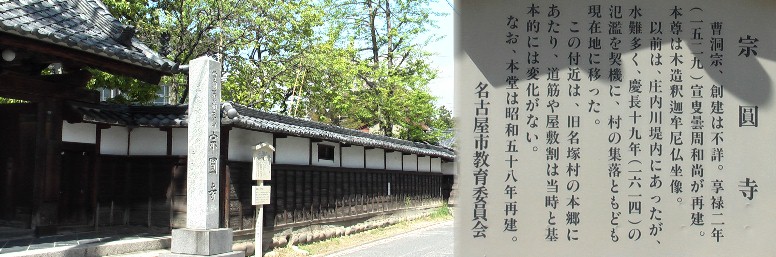 宗圓寺
宗圓寺
曹洞宗、創建は不詳。享禄二年
(一五二九)宣叟曇周和尚が再建。
本尊は木造釈迦牟尼仏坐像。
以前は、庄内川堤内にあったが、
水難多く、慶長十九年(一六一四)の
氾濫を契機に、村の集落ともども
現在地に移った。
この付近は、旧名塚村の本郷に
あたり、道筋や屋敷割は当時と基
本的には変化がない。
なお、本堂は昭和五十八年再建。
名古屋市教育委員会